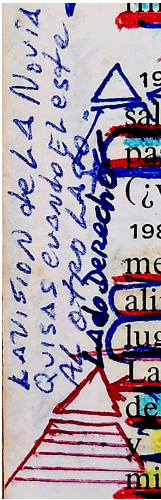 LA VISION de LA NOVIA
QUISAS cuando EL este
AL OTRO LADO
LAdo Derecho
19
sal
pa
(¿v
198
me
ali
lug
La
de
y s
mi